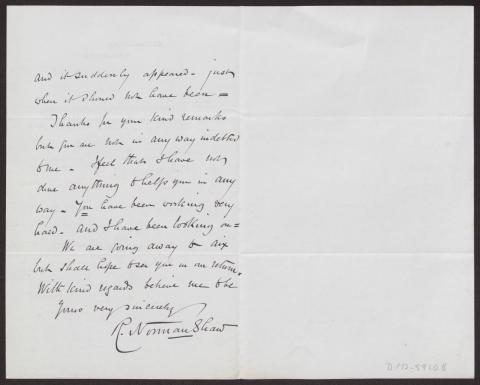 and it suddenly appeared - just
when it should not have been =
Thanks for your kind remarks
but you are not in any way indebted
to me - I feel that I have not
done anything to help you in any
way - You have been working very
hard - and I have been looking on =
We are going away to Aix
but shall hope to see you on our return.
With kind regards believe me to be
Yours very sincerely
R. Norman Shaw